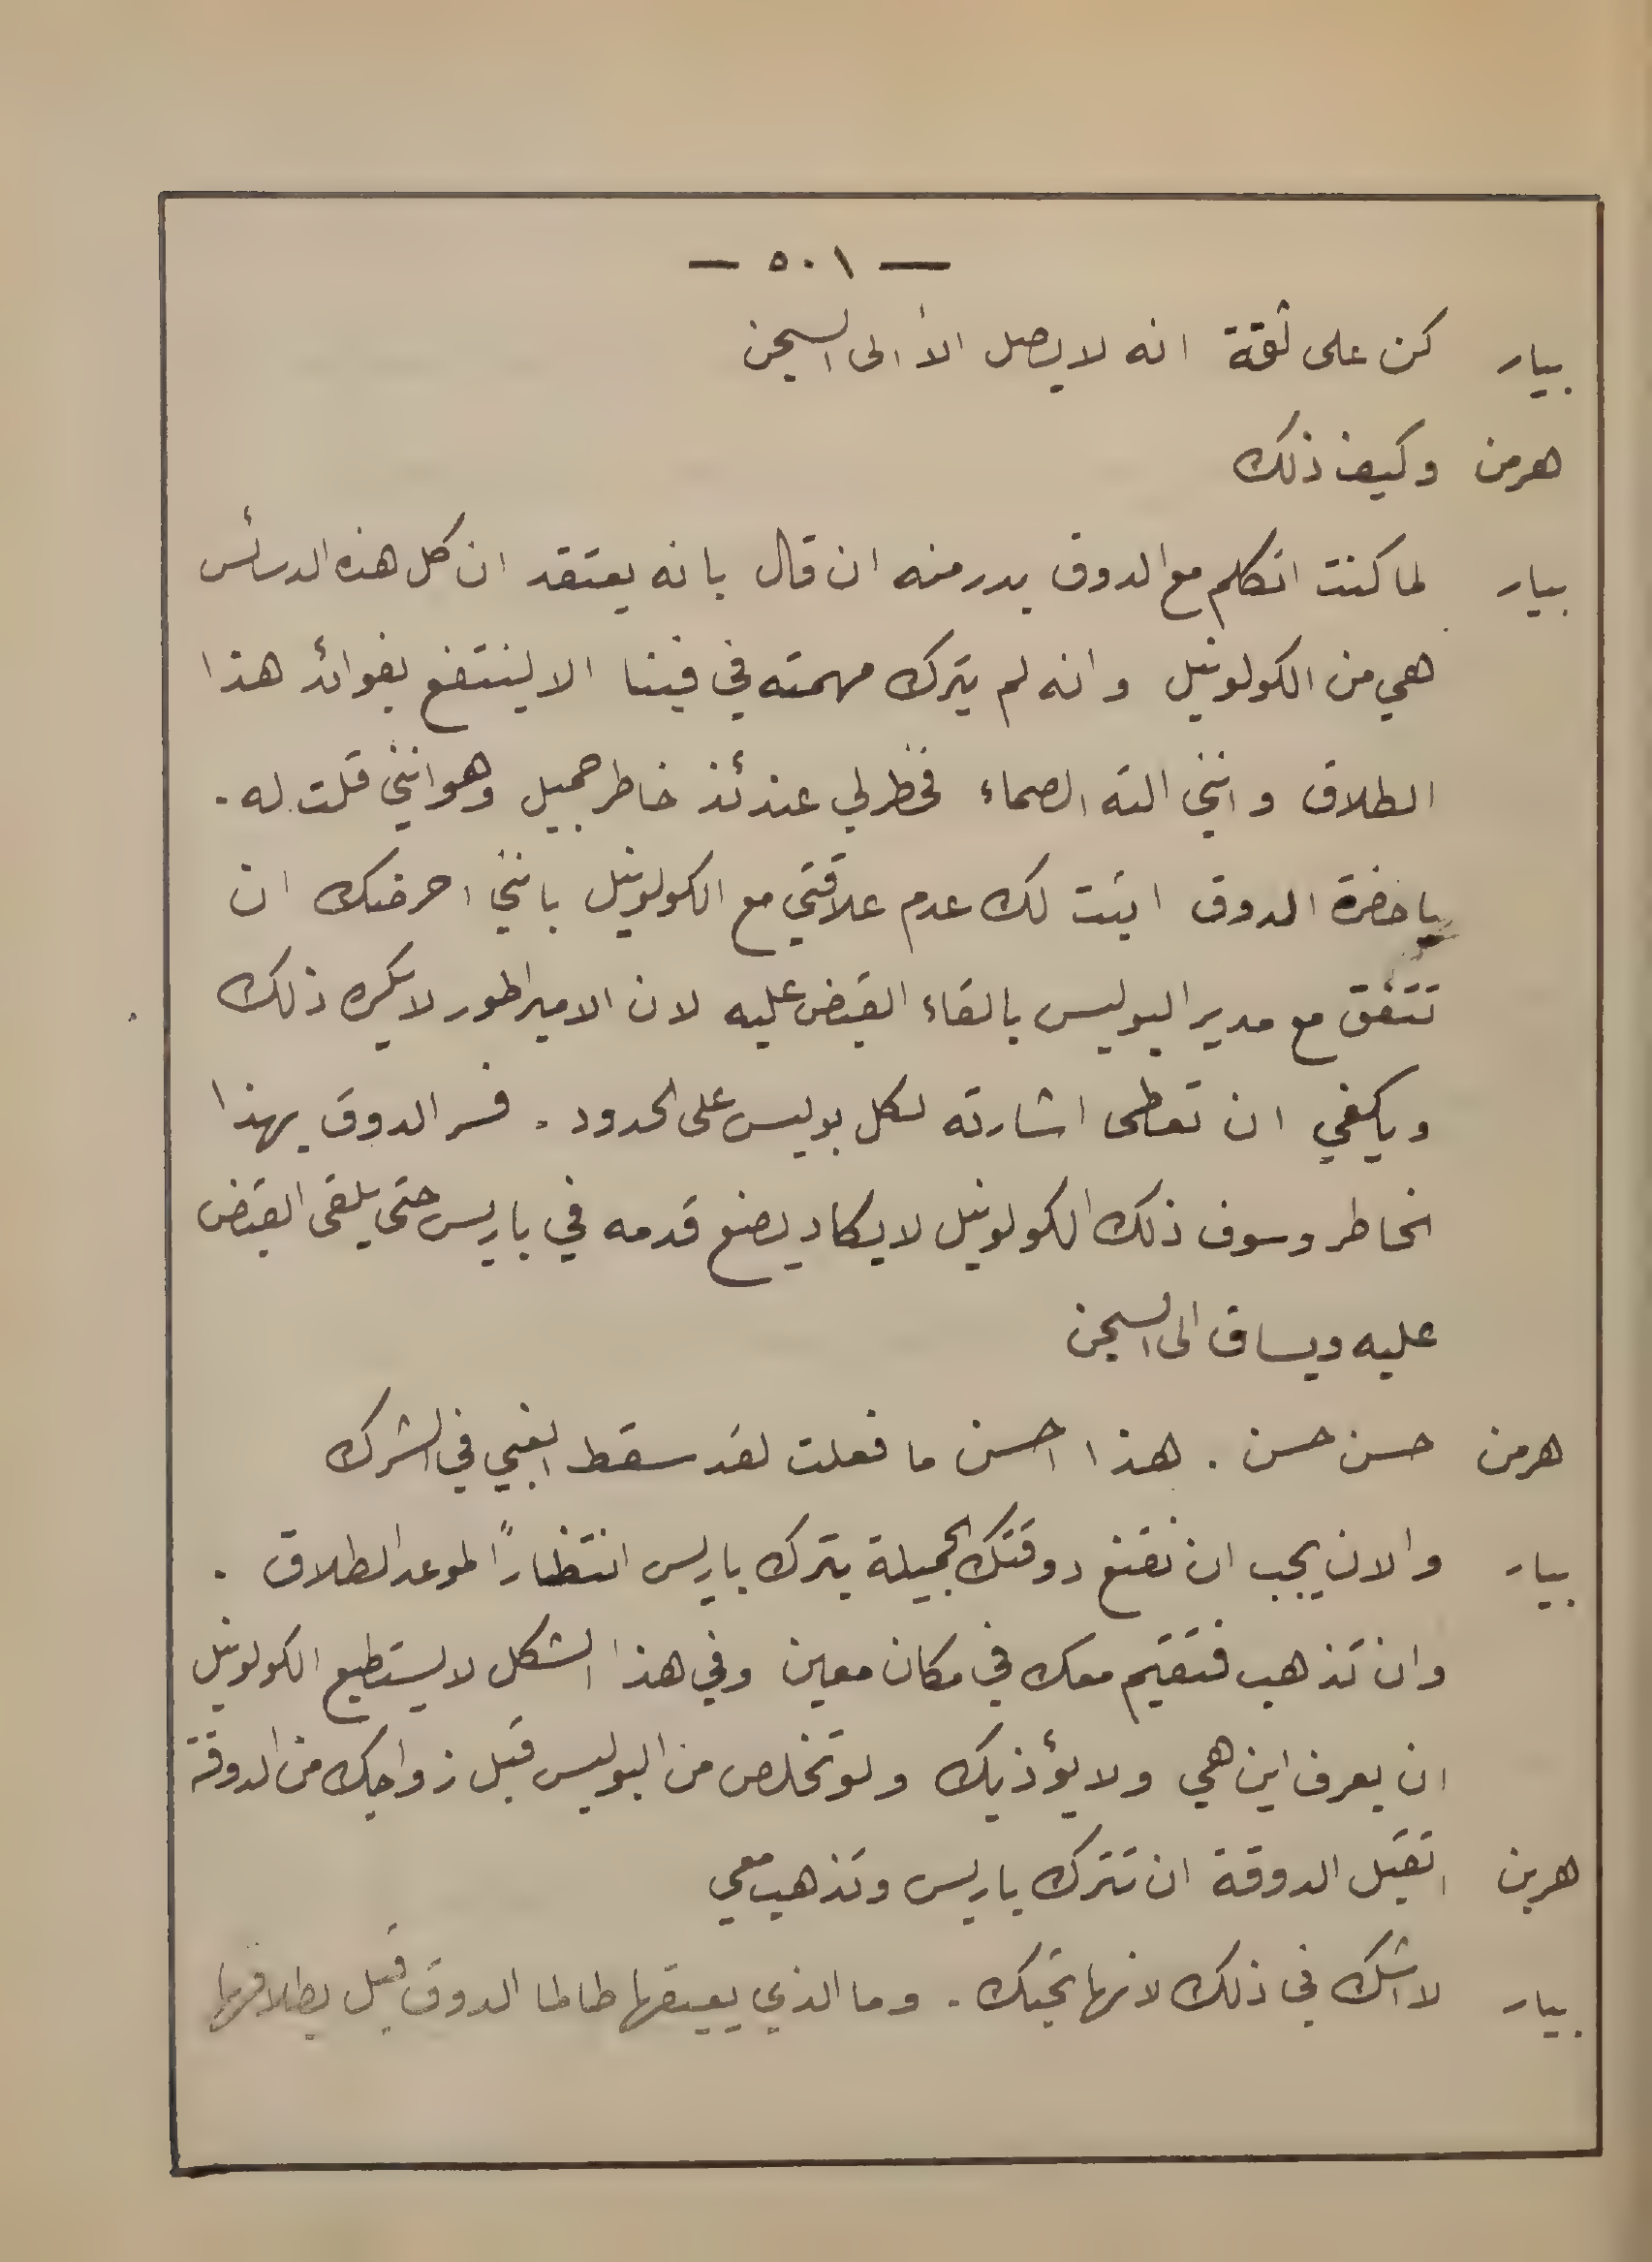 — ٥٠١ —
بيار كن على ثقة انه لا يصل الا الى السجن
هرمن وكيف ذلك
بيار لما كنت اتكلم مع الدوق بدر منه ان قال بانه يعتقد ان كل هذه الدسائس
هي من الكولونيل وانه لم يترك مهمته في فينا الا لينتفع بفوائد هذا
الطلاق وانني الته الصماء فخطر لي عندئذ خاطر جميل وهو انني قلت له .
يا حضرة الدوق اثبت لك عدم علاقتي مع الكولونيل بانني احرضك ان
تتفق مع مدير البوليس بالقاء القبض عليه لان الامبراطور لا يكره ذلك
ويكفي ان تعطى اشارته لكل بوليس على الحدود . فسر الدوق بهذا
الخاطر وسوف ذلك الكولونيل لا يكاد يضع قدمه في باريس حتى يلقى القبض
عليه ويساق الى السجن
هرمن حسن حسن . هذا احسن ما فعلت لقد سقط الغبي في الشرك
بيار والان يجب ان نقنع دوقتك الجميلة بترك باريس انتظاراً لموعد الطلاق .
وان تذهب فتقيم معك في مكان معين وفي هذا الشكل لا يستطيع الكولونيل
ان يعرف اين هي ولا يؤذيك ولو تخلص من البوليس قبل زواجك من الدوقة
هرمن اتقبل الدوقة ان تترك باريس وتذهب معي
بيار لا شك في ذلك لانها تحبك . وما الذي يعيقها طالما الدوق قبل بطلاقها